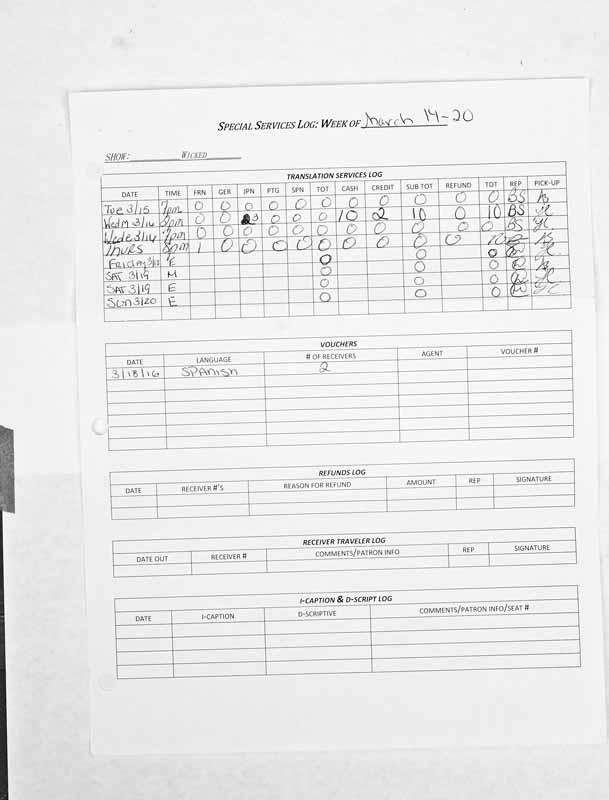 SPECIAL SERVICES LOG: WEEK OF March 14-20
SHOW: WICKED
TRANSLATION SERVICES LOG
DATE TIME FRN GER JPN PTG SPN TOT CASH CREDIT SUB TOT REFUND TOT REP PICK-UP
Tue 3/15 7pm 0 0 0 0 0 0 0 0 0 0 0 BS
Wed M 3/16 2pm 0 0 3 0 0 0 10 2 10 0 10 BS
Wed e 3/16 7pm 0 0 0 0 0 0 0 0 0 0 0 BS
THURS 8pm 1 0 0 0 0 0 0 0 0 0
Friday E 0 0 0
SAT 3/19 M 0 0
SAT 3/19 E 0 0
SUN 3/20 E 0 0 0
VOUCHERS
DATE LANGUAGE # OF RECEIVERS AGENT VOUCHER #
3/18/16 SPANISH 2
REFUNDS LOG
DATE RECEIVER #'S REASON FOR REFUND AMOUNT REP SIGNATURE
RECEIVER TRAVELER LOG
DATE OUT RECEIVER # COMMENTS/PATRON INFO REP SIGNATURE
I-CAPTION & D-SCRIPT LOG
DATE I-CAPTION D-SCRIPTIVE COMMENTS/PATRON INFO/SEAT #